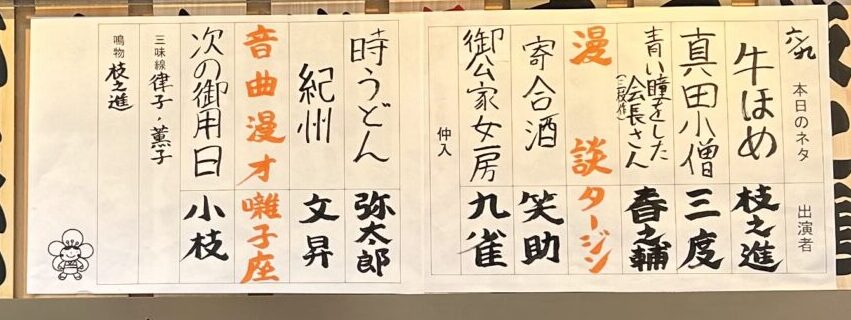 六九 本日のネタ 出演者
牛ほめ 枝之進
真田小僧 三度
青い瞳をした
会長さん 春之輔
(三枝作)
漫談 タージン
寄合酒 笑助
御公家女房 九雀
仲入
時うどん 弥太郎
紀州 文昇
音曲漫才 囃子座
次の御用日 小枝
三味線 律子・薫子
鳴物 枝之進